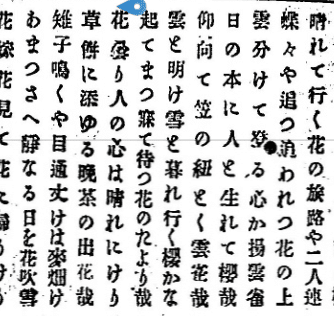 晴れて行く花の旅路や二人連
蝶々や追つ追われつ花の上
雲分けて登る心か揚雲雀
日の本に人と生れて櫻哉
仰向て笠の紐とく雲花哉
雲と明け雪と暮れ行く櫻かな
起てまつ寐て待つ花のたより哉
花曇り人の心は晴れにけり
草餅に添ゆる晩茶の出花哉
雉子鳴くや目通丈けは麥畑け
あまつさへ靜なる日を花吹雪
花見て花に歸りけり